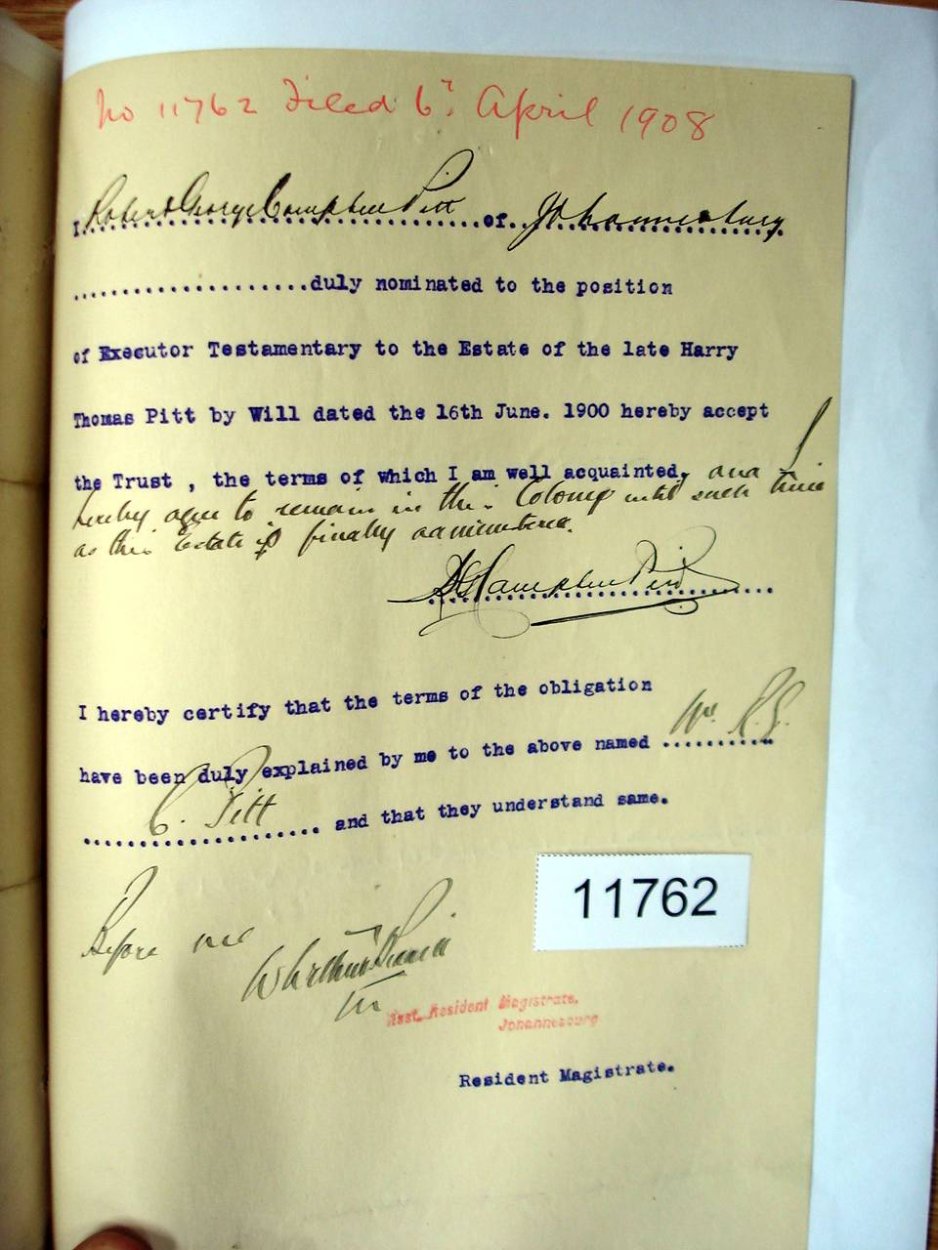 No 11762 Filed 6th April 1908
I Robert George Campbell Pitt of Johannesburg
duly nominated to the position
of Executor Testamentary to the Estate of the late Harry
Thomas Pitt by Will dated the 16th June. 1900 hereby accept
the Trust , the terms of which I am well acquainted, and I
hereby agree to remain in this Colony until such time
as this Estate is finally administered.
Campbell Pitt
I hereby certify that the terms of the obligation
have been duly explained by me to the above named Mr R.G.
C. Pitt and that they understand same.
11762
Before me
Asst. Resident Magistrate.
Johannesburg
Resident Magistrate.